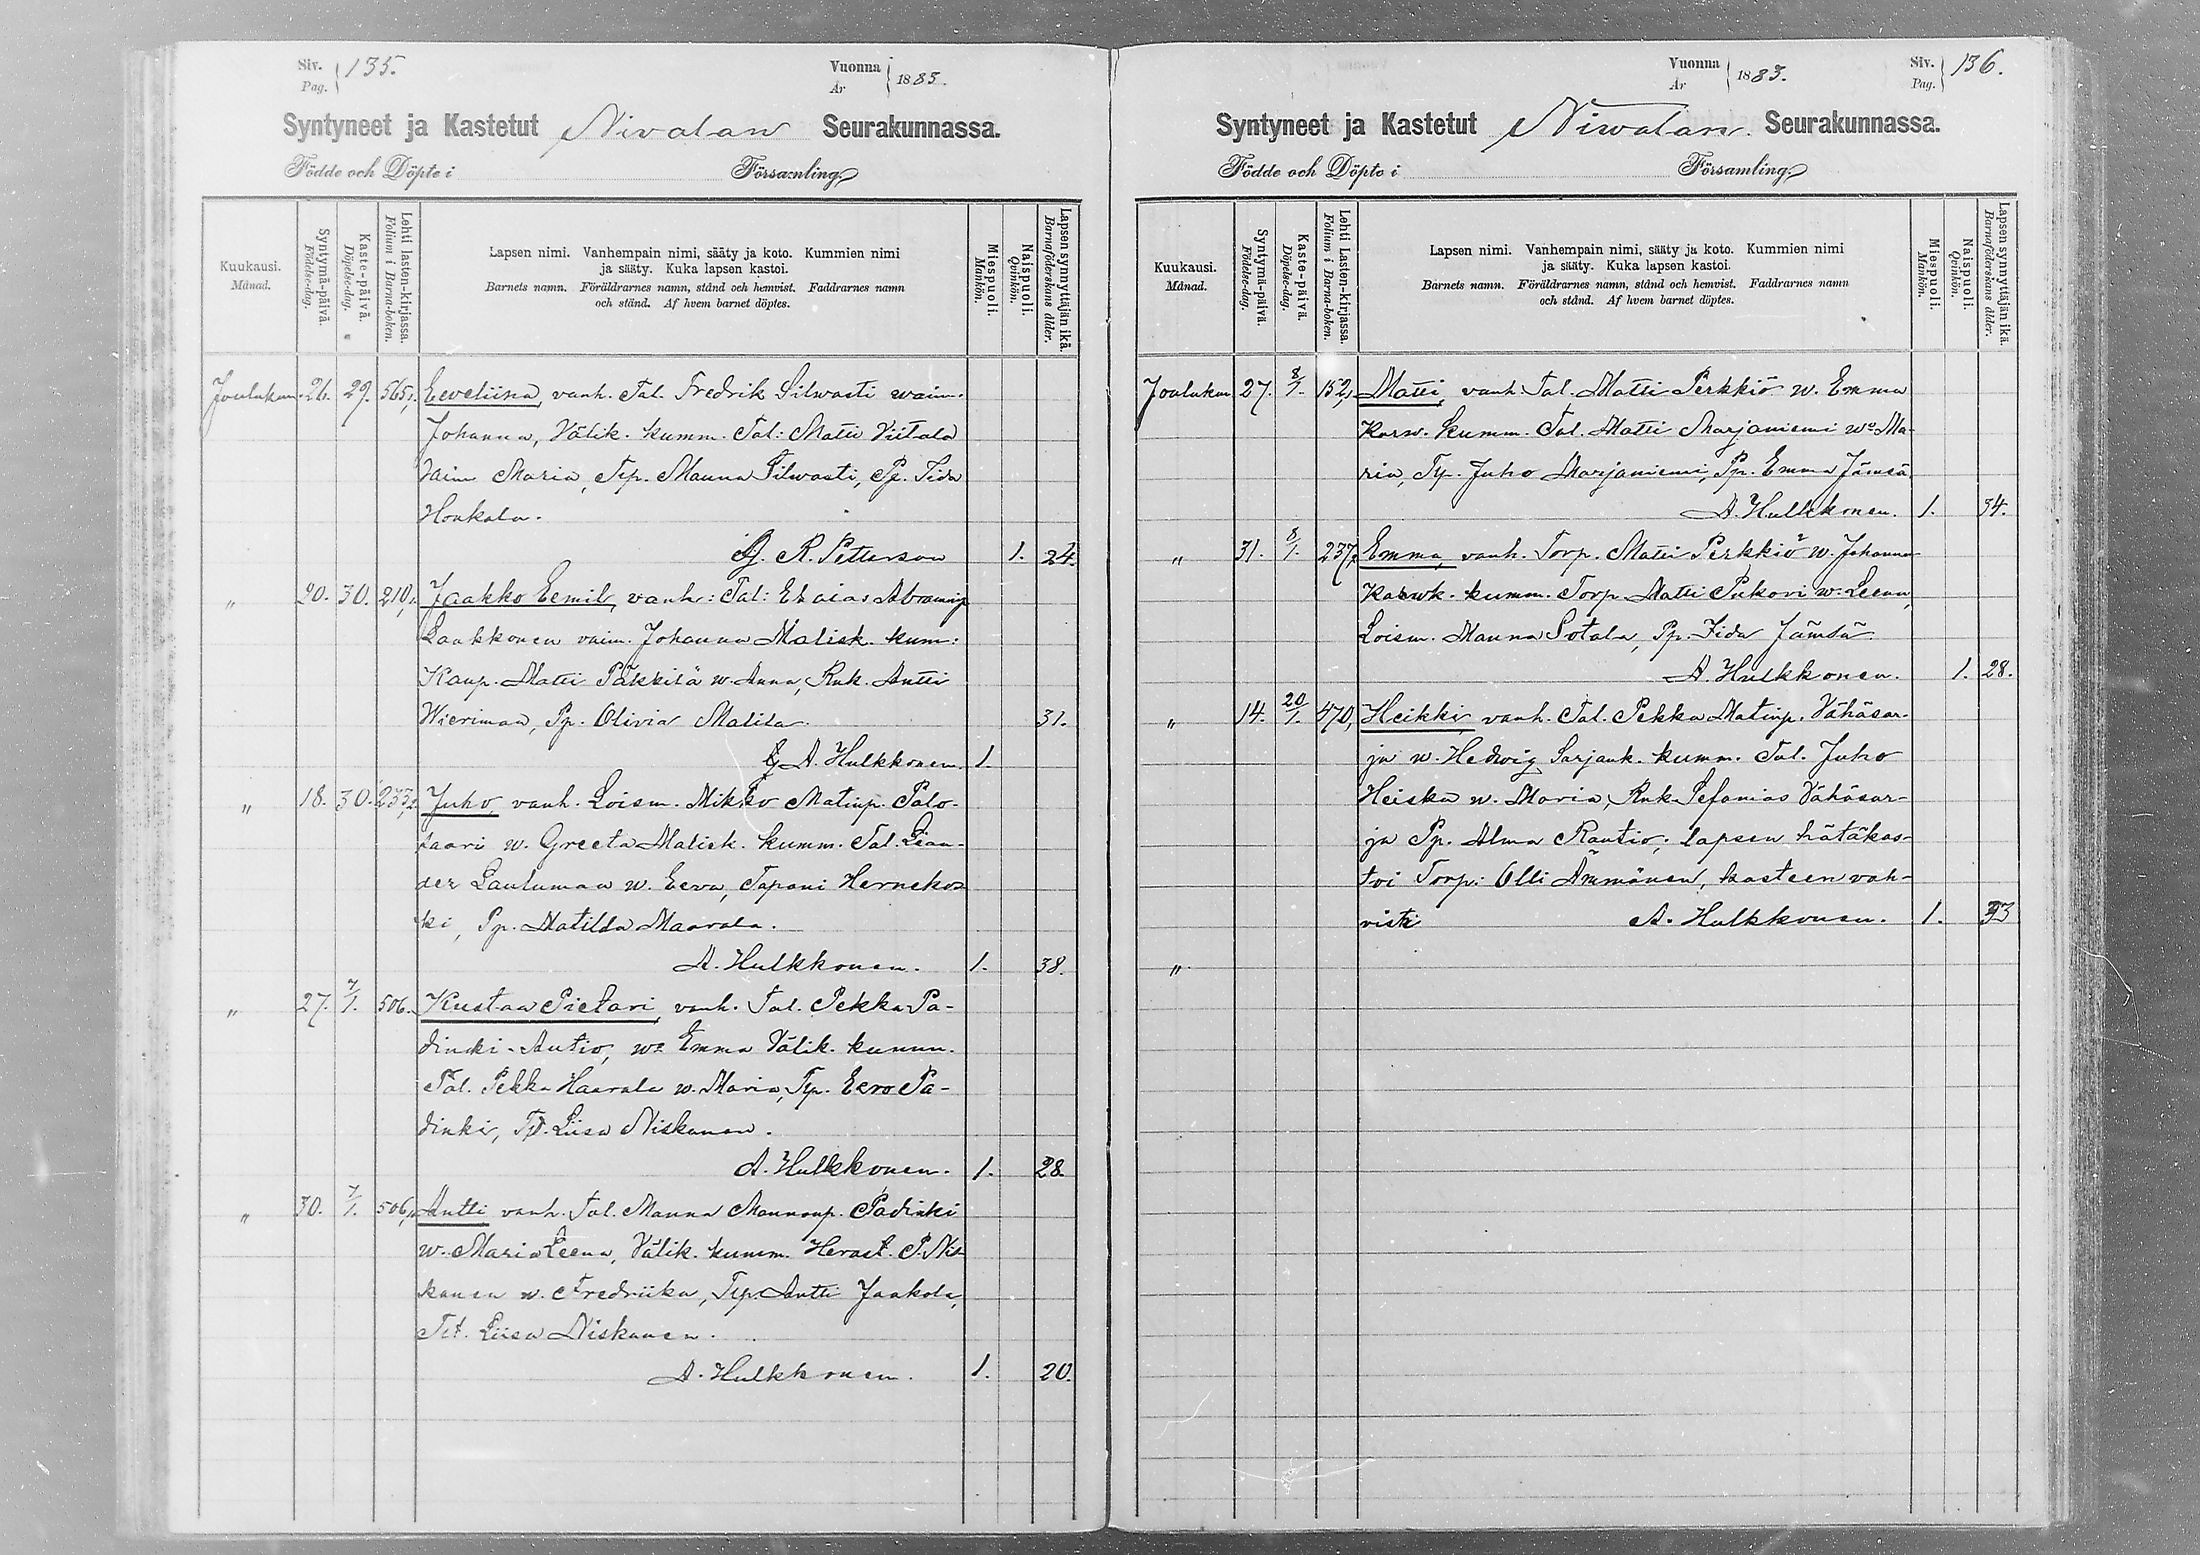 Siv. 135.
Pag.
Vuonna 1883.
År
Syntyneet ja Kastetut Nivalan Seurakunnassa.
Födde och Döpte i Församling.
Kuukausi.
Månad.
Syntymä-päivä.
Födelse-dag.
Kaste-päivä.
Döpelse-dag.
Lehti lasten-kirjassa.
Folium i Barna-boken.
Lapsen nimi. Vanhempain nimi, sääty ja koto. Kummien nimi
ja sääty. Kuka lapsen kastoi.
Barnets namn. Föräldrarnes namn, stånd och hemvist. Faddrarnes namn
och stånd. Af hvem barnet döptes.
Miespuoli.
Mankön.
Naispuoli.
Qvinkön.
Lapsen synnyttäjän ikä.
Barnaföderskans ålder.
Joulukuu. 26. 29. 565, Eeveliina, vanh. Tal. Fredrik Silwasti waim.
Johanna, Välik. kumm. Tal: Matti Viitala
Vaim Maria, Tp. Manna Silwasti, Pp. Iida
Honkala.
G. R. Petterson 1. 24.
" 20. 30. 210, Jaakko Eemil, vanh: Tal: Esaias Abraminp
Laakkonen vaim. Johanna Malisk. kum:
Kaup. Matti Päkkilä w. Anna, Rnk. Antti
Wieriman, Pp. Olivia Malila. 31.
A. Hulkkonen. 1.
" 18. 30. 233, Juho, vanh. Loism. Mikko Matinp. Palo-
saari w. Greeta Malisk. kumm. Tal. Lean-
der Lauluman w. Eeva, Tapani Hernekos
ki, Pp. Matilda Maarala.
A. Hulkkonen. 1. 38.
" 27. 7/1. 506. Kustaa Pietari, vanh. Tal. Pekka Pa-
dinki-Autio, w: Emma Välik. kumm.
Tal. Pekka Haarala w. Maria, Tp. Eero Pa-
dinki, Tt. Liisa Niskanen.
A. Hulkkonen. 1. 28.
" 30. 7/1. 506, Antti vanh. Tal. Manna Mannanp. Padinki
w. Maria Leena, Välik. kumm. Herast. P. Nis-
kanen w. Fredriika, Tp. Antti Jaakola,
Tt. Liisa Niskanen.
A. Hulkkonen. 1. 20.
Vuonna 1883.
År
Siv. 136.
Pag.
Syntyneet ja Kastetut Niwalan Seurakunnassa.
Födde och Döpte i Församling.
Kuukausi.
Månad.
Syntymä-päivä.
Födelse-dag.
Kaste-päivä.
Döpelse-dag.
Lehti Lasten-kirjassa.
Folium i Barna-boken.
Lapsen nimi. Vanhempain nimi, sääty ja koto. Kummien nimi
ja sääty. Kuka lapsen kastoi.
Barnets namn. Föräldrarnes namn, stånd och hemvist. Faddrarnes namn
och stånd. Af hvem barnet döptes.
Miespuoli.
Mankön.
Naispuoli.
Qvinkön.
Lapsen synnyttäjän ikä.
Barnaföderskans ålder.
Joulukuu 27. 8/1. 152, Matti, vanh. Tal. Matti Perkkiö w. Emma
Karw. kumm. Tal. Matti Marjaniemi w: Ma-
ria, Tp. Juho Marjaniemi, Pp. Emma Jämsä.
A. Hulkkonen. 1. 34.
" 31. 8/1. 237, Emma, vanh. Torp. Matti Perkkiö w. Johanna
Karwk. kumm. Torp. Matti Pukori w: Leena,
Loism. Manna Sotala, Pp. Iida Jämsä
A. Hulkkonen. 1. 28.
" 14. 20/1. 470, Heikki, vanh. Tal. Pekka Matinp. Vähäsar-
ja w. Hedwig Sarjank. kumm. Tal. Juho
Heiska w. Maria, Rnk. Sefanias Vähäsar-
ja Pp. Alma Rautio; lapsen hätäkas-
toi Torp: Olli Ämmänen, kasteen vah-
visti A. Hulkkonen. 1. 33
"